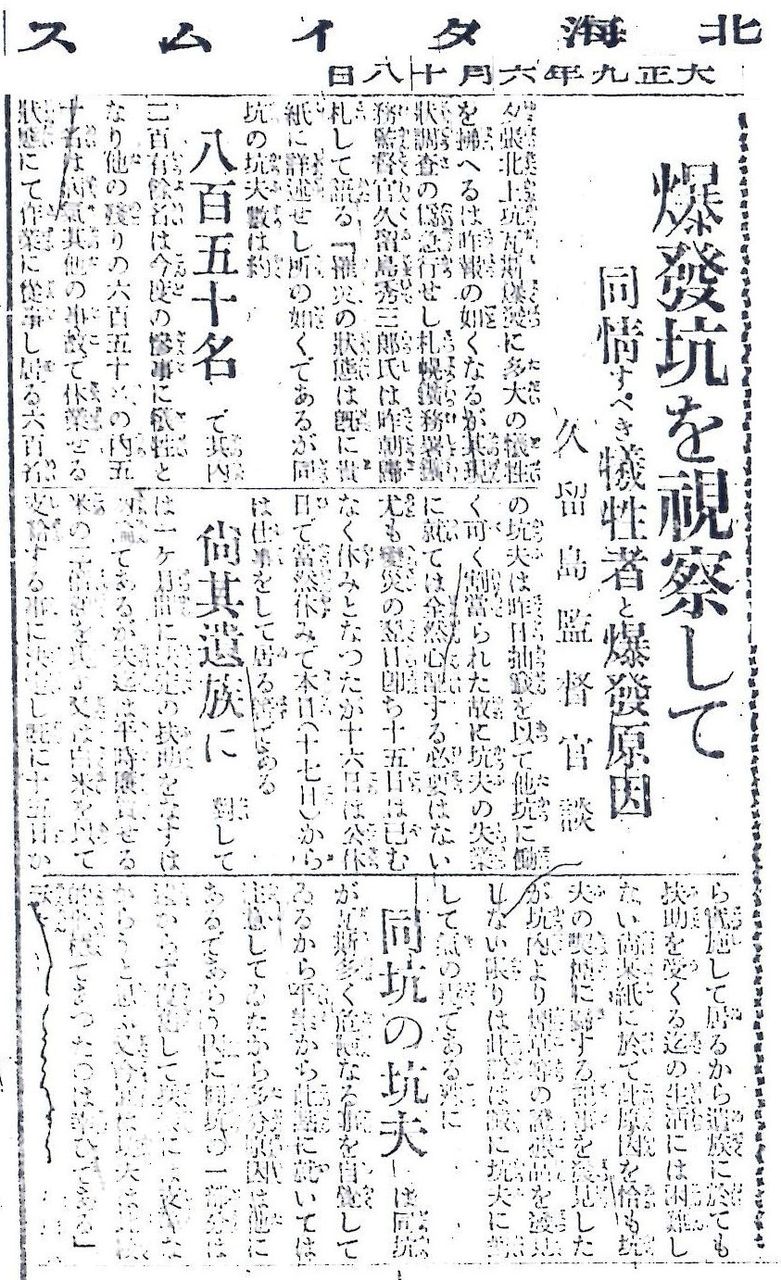 北海タイムス
大正九年六月十八日
爆發坑を視察して
同情すべき犠牲者と爆發原因
久留島監督官談
夕張北上坑瓦斯爆發に多大の犠牲
を拂へるは昨報の如くなるが其現
狀調査の爲急行せし札幌鑛務署鑛
務監督官久留島秀三郎氏は昨朝歸
札して語る「罹災の狀態は旣に貴
紙に詳述せし所の如くであるが同
坑の坑夫數は約
八百五十名 で其内
二百有餘名は今度の慘事に犠牲と
なり他の殘りの六百五十名の内五
十名は病氣其他の事故で休業せる
狀態にて作業に從事し居る六百名
の坑夫は昨日抽籤を以て他坑に働
く可く割當られた故に坑夫の失業
に就ては全然心配する必要はない
尤も變災の翌日卽ち十五日は已む
なく休みとなつたが十六日は公休
日で當然休みで本日(十七日)から
は仕事をして居る筈である
尙其遺族に 對して
は一ケ月間に決定の扶助をなすは
勿論であるが夫迄は平時應賃せる
米の
又は白米を以て
支給する事に決定し旣に十五日か
ら實施して居るから遺族に於ても
扶助を受くる迄の生活には困難し
ない尙某紙に於て此原因を恰も坑
夫の喫煙に歸する記事を發見した
が坑内より煙草等の
しない限りは此說は實に坑夫に對
して氣の毒である殊に
同坑の坑夫 は同坑
が瓦斯多く危險なる事を自覺して
ゐるから平素から此點に就いては
注意してゐたから多分原因は他に
あるであらう
同坑の一部分は